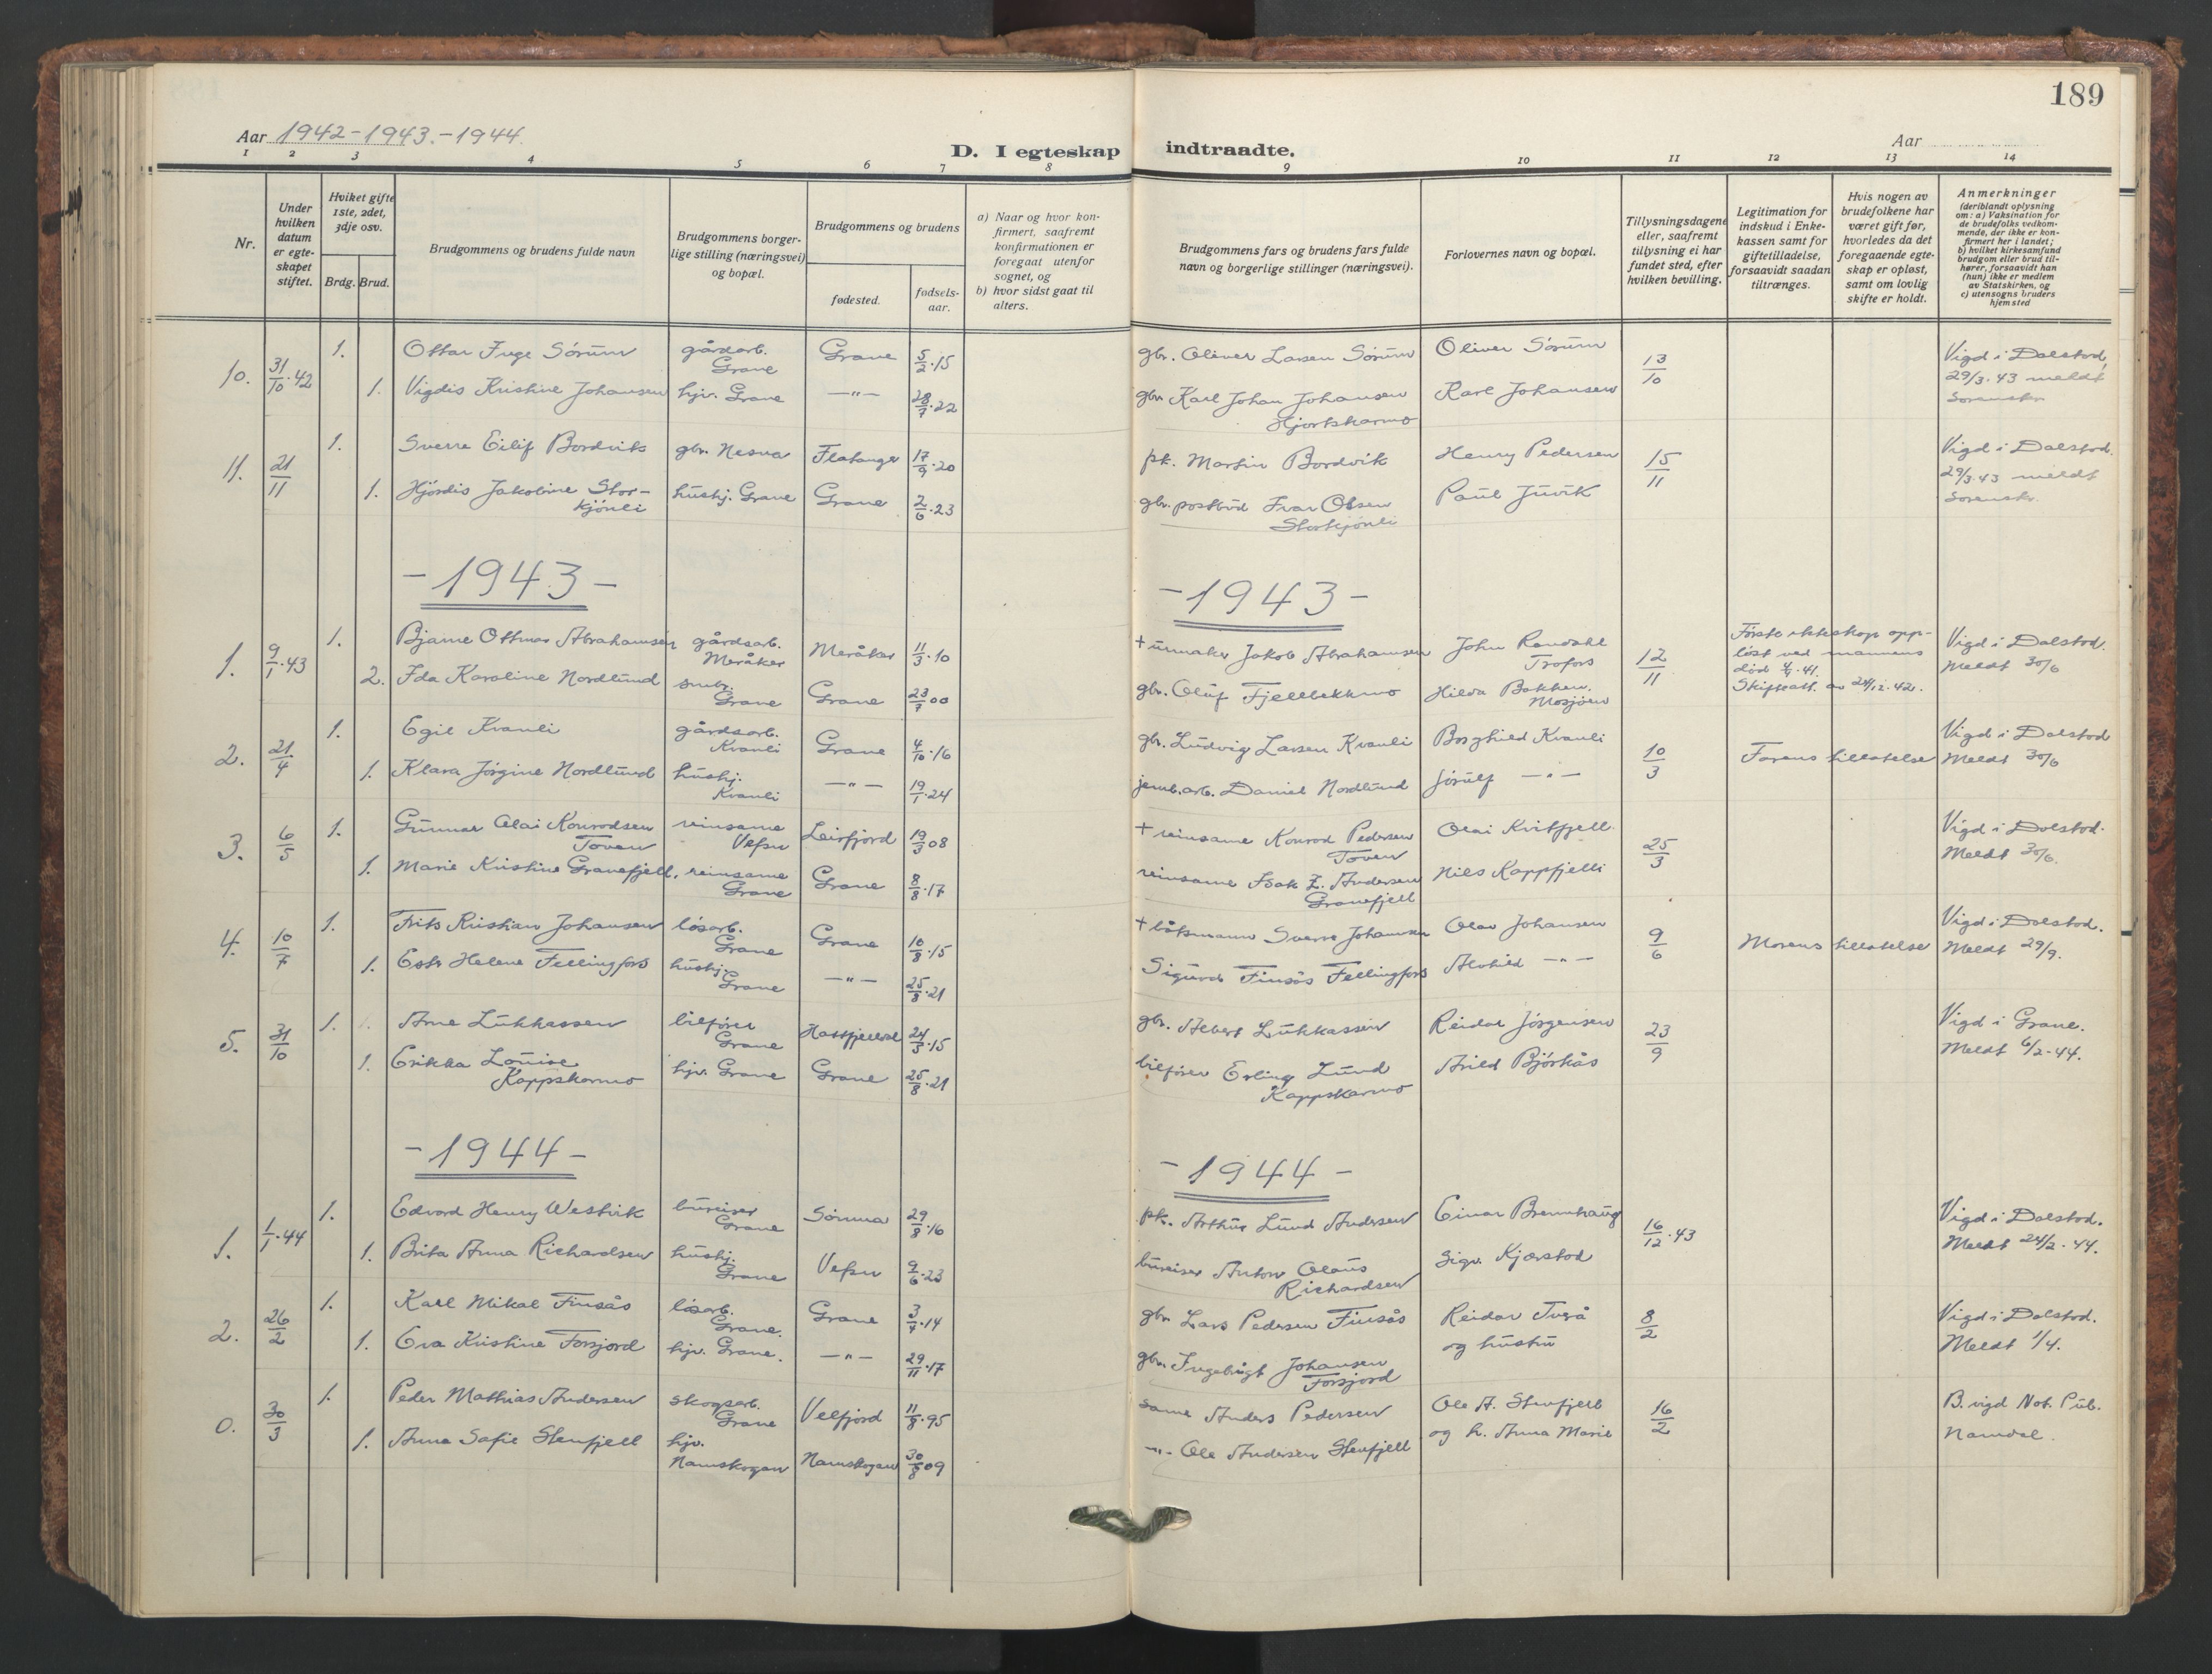 189
Aar 1942-1943.-1944.
Aar
D. I egteskap indtraadte.
1 2 3 4 5 6 7 8 9 10 11 12 13 14
Nr.
Under hvilken datum er egte-skapet stiftet.
Hviket gifte 1ste, 2det, 3dje osv.
Brdg. Brud.
Brudgommens og brudens fulde navn
Brudgommens borger-lige stilling (næringsvei) og bopæl.
Brudgommens og brudens
fødested.
fødsels-aar.
a) Naar og hvor kon-firmert, saafremt konfirmationen er foregaat utenfor sognet, og
b) hvor sidst gaat til alters.
Brudgommens fars og brudens fars fulde navn og borgerlige stillinger (næringsvei).
Forlovernes navn og bopæl.
Tillysningsdagene eller, saafremt tillysning ei har fundet sted, efter hvilken bevilling.
Legitimation for indskud i Enke-kassen samt for giftetilladelse, forsaavidt saadan tiltrænges.
Hvis nogen av brudefolkene har været gift før, hvorledes da det foregaaende egte-skap er opløst, samt om lovlig skifte er holdt.
Anmerkninger (deriblandt oplysning om: a) Vaksination for de brudefolks vedkom-mende, der ikke er kon-firmert her i landet; b) hvilket kirkesamfund brudgom eller brud til-hører, forsaavidt han (hun) ikke er medlem av Statskirken, og c) utensogns bruders hjemsted
10. 31/10.42 1. Ottar Inge Sörum gårdarb. Grane Grane 5/2.15 gbr. Oliver Larsen Sörum Oliver Sörum 13/10 Vigd i Dolstad, 29/3.43 meldt Sorenskr.
1. Vigdis Kristine Johansen hjv. Grane —"— 28/7.22 gbr. Karl Johan Johansen Hjortskarmo Karl Johansen
11. 21/11 1. Sverre Eilif Bordvik gbr. Nesna Flatanger 17/9.20 pk. Martin Bordvik Henry Pedersen 15/11 Vigd i Dolstad. 29/3.43 meldt Sorenskr.
1. Hjördis Jakobine Stor-kjönli hushj. Grane Grane 2/6.23 gbr. postbud Ivar Olsen Storkjönli Paul Juvik
-1943- -1943-
1. 9/1.43 1. Bjarne Ottmar Abrahamsen gårdsarb. Meråker Meråker 11/3.10 + urmaker Jakob Abrahamsen John Randahl Trofors 12/11 Første ekteskap opp-löst ved mannens död 4/4.41. Skifteatt. av 24/12.42. Vigd i Dolstad. Meldt 30/6
2. Ida Karoline Nordlund smbr. Grane Grane 23/7 00 gbr. Oluf Fjellbekkmo Hilda Bakken, Mosjöen
2. 21/4 1. Egil Kvanli gårdsarb. Kvanli Grane 4/10.16 gbr. Ludvig Larsen Kvanli Borghild Kvanli 10/3 Farens tillatelse Vigd i Dolstad Meldt 30/6
1. Klara Jörgine Nordlund hushj. Kvanli —"— 19/1.24 jernb.arb. Daniel Nordlund Jörulf —"—
3. 6/5 1. Gunnar Olai Konradsen Toven reinsame Vefsn Leirfjord 19/3 08 + reinsame Konrad Pedersen Toven Olai Kvitfjell 25/3 Vigd i Dolstad. Meldt 30/6.
1. Marie Kristine Granefjell, reinsame Grane Grane 8/8.17 reinsame Isak Z. Andersen Granefjell Nils Kappfjelli
4. 10/7 1. Frits Kristian Johansen lösarb. Grane Grane 10/8.15 + båtsmann Sverre Johansen Olav Johansen 9/6 Morens tillatelse Vigd i Dolstad. Meldt 29/9.
1. Ester Helene Fellingfors hushj. Grane —"— 25/8.21 Sigurd Finsås Fellingfors Alvhild —"—
5. 31/10 1. Arne Lukkassen bilförer Grane Hattfjelldal 24/5.15 gbr. Albert Lukkassen Reidar Jörgensen 23/9 Vigd i Grane. Meldt 6/2-44.
1. Erikka Louise Kappskarmo hjv. Grane Grane 25/8.21 bilförer Erling Lund Kappskarmo Arild Björkås
-1944- -1944-
1. 1/1.44 1. Edvard Henry Westvik bureiser Grane Sömna 29/8.16 pk. Arthur Lund Andersen Einar Brennhaug 16/12.43 Vigd i Dolstad. Meldt 24/2-44.
1. Brita Anna Richardsen hushj. Grane Vefsn 9/6.23 bureiser Anton Olaus Richardsen Sigv. Kjærstad
2. 26/2 1. Karl Mikal Finsås lösarb. Grane. Grane 3/4.14 gbr Lars Pedersen Finsås Reidar Tverå og hustru 8/2 Vigd i Dolstad. Meldt 1/4.
1. Eva Kristine Forsjord hjv. Grane. —"— 29/11.17 gbr. Ingebrigt Johansen Forsjord
0. 30/3 1. Peder Mathias Andersen skogsarb. Grane Velfjord 11/8.95 same Anders Pedersen Ole A. Stenfjell og h. Anna Marie 16/2 B. vigd Not. Pub. Namdal.
1. Anna Safie Stenfjell hjv. Namskogan Namskogan 30/8 09 —"— Ole Andersen Stenfjell